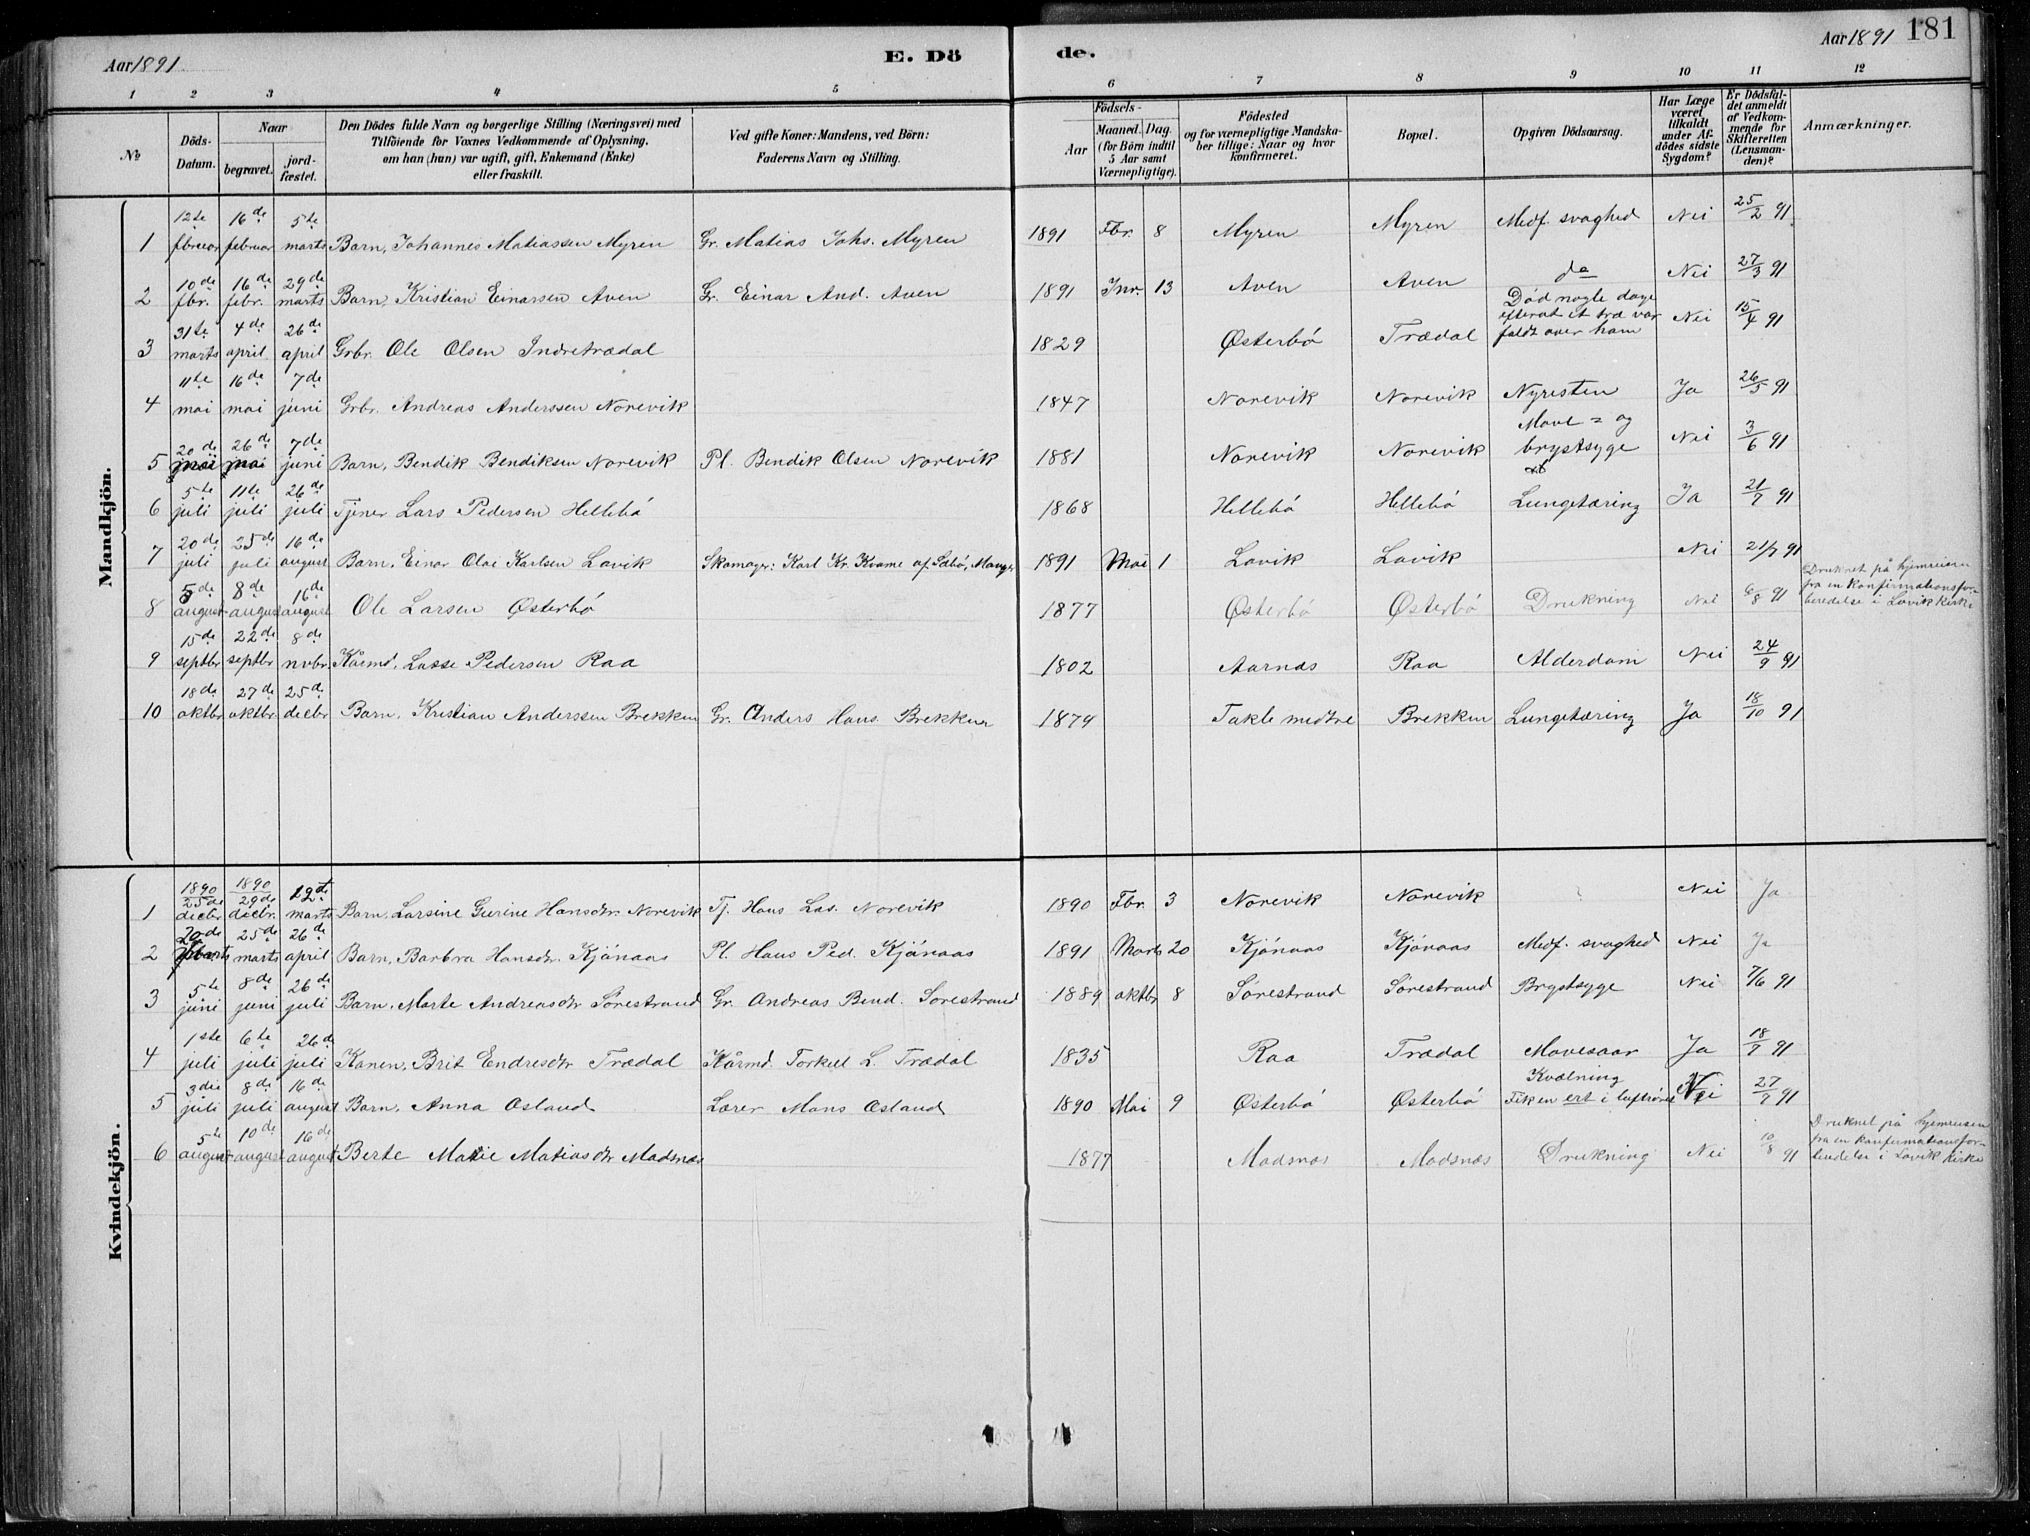 Aar 1891 E. Dö de. Aar 1891 181
1 2 3 4 5 6 7 8 9 10 11 12
№
Döds-
Datum.
Naar
begravet.
jord-
fæstet.
Den Dödes fulde Navn og borgerlige Stilling (Næringsvei) med
Tilföiende for Voxnes Vedkommende af Oplysning,
om han (hun) var ugift, gift, Enkemand (Enke)
eller fraskilt.
Ved gifte Koner: Mandens, ved Börn:
Faderens Navn og Stilling.
Födsels-
Aar
Maaned. Dag.
(for Börn indtil
5 Aar samt
Værnepligtige).
Födested
og for værnepligtige Mandska-
ber tillige: Naar og hvor
konfirmeret.
Bopæl.
Opgiven Dödsaarsag.
Har Læge
været
tilkaldt
under Af-
dödes sidste
Sygdom?
Er Dödsfal-
det anmeldt
af Vedkom-
mende for
Skifteretten
(Lensman-
den)?
Anmærkninger.
Mandkjön.
1 12te februar 16de februar 5te marts Barn, Johannes Matiassen Myren Gr. Matias Johs. Myren 1891 Fbr. 8 Myren Myren Medf. svaghed Nei 25/2 91
2 10de fbr. 16de febr. 29de marts Barn, Kristian Einarsen Aven Gr. Einar And. Aven 1891 Jnr. 13 Aven Aven do Nei 27/3 91
3 31te marts 4de april 26de april Grbr. Ole Olsen Indretrædal 1829 Østerbó Trædal Død nogle dage
efterat et træ var
faldt over ham Nei 15/4 91
4 11te mai 16de mai 7de juni Grbr. Andreas Anderssen Norevik 1847 Norevik Norevik Nyresten Ja 26/5 91
5 20de mai 26de mai 7de juni Barn, Bendik Bendiksen Norevik Pl. Bendik Olsen Norevik 1881 Norevik Norevik Mave= og
brystsyge Nei 3/6 91
6 5te juli 11te juli 26de juli Tjener Lars Pedersen Hellebó 1868 Hellebó Hellebó Lungetæring Ja 21/7 91
7 20de juli 25de juli 16de august Barn, Einar Olai Karlsen Lavik Skomager: Karl Kr. Kvame af Sæbø, Manger 1891 Mai 1 Lavik Lavik Nei 21/7 91
8 5de august 8de august 16de august Ole Larsen Østerbó 1877 Østerbó Østerbó Drukning Nei 6/8 91 Druknet på hjemreisen
fra en konfirmationsfor-
beredelse i Lavik kirke
9 15de septbr 22de septbr 8de nvbr. Kårmd. Lasse Pedersen Raa 1802 Aarnæs Raa Alderdom Nei 24/9 91
10 18de oktbr 27de oktbr 25de decbr Barn, Kristian Anderssen Brekken Gr. Anders Hans. Brekken 1879 Takle medtre Brekken Lungetæring Ja 18/10 91
Kvindekjön.
1 1890 25de decbr 1890 29de decbr. 12te marts Barn, Larsine Gurine Hansdr. Norevik Tj. Hans Las. Norevik 1890 Fbr. 3 Norevik Norevik Nei Ja
2 20de marts 25de marts 26de april Barn, Barbra Hansdr. Kjónaas Pl. Hans Ped. Kjónaas 1891 Marts 20 Kjónaas Kjónaas Medf. svaghed Nei Ja
3 5te juni 8de juni 26de juli Barn, Marte Andreasdr Sórestrand Gr. Andreas Bend. Sorestrand 1889 oktbr 8 Sórestrand Sórestrand Brystsyge Nei 7/6 91
4 1ste juli 6te juli 26de juli Konen, Brit Endresdr Trædal Kårmd. Torkell L. Trædal 1835 Raa Trædal Mavesaar Ja 18/7 91
5 3die juli 8de juli 16de august Barn, Anna Osland Lærer Mons Osland 1890 Mai 9 Østerbó Østerbó Kvælning
Fik en ert i luftrøret Nei 27/7 91
6 5te august 10de august 16de august Berte Matie Matiasdr Madsnæs 1877 Madsnæs Madsnæs Drukning Nei 10/8 91 Druknet på hjemreisen
fra en konfirmationsfor-
beredelse i Lavik kirke